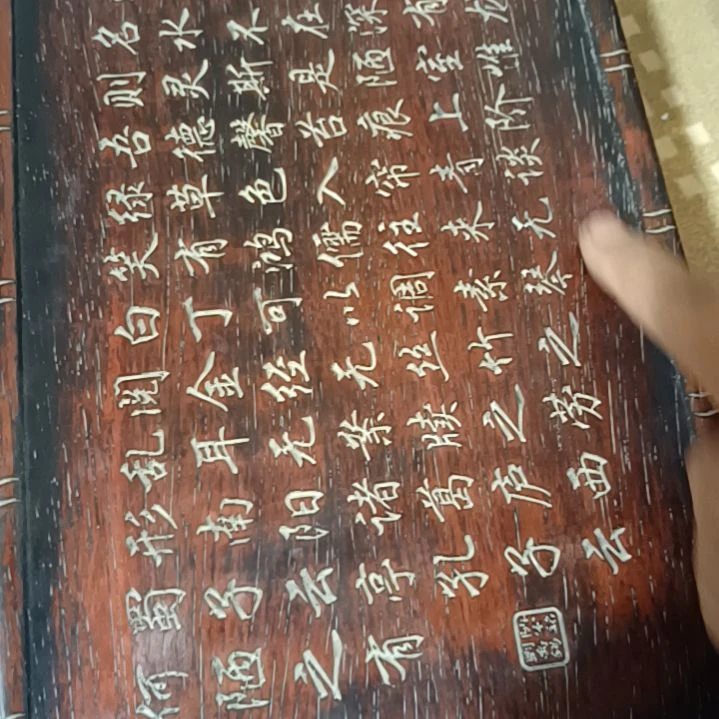 名水不在深有龙
则灵斯是陋室惟
吾德馨苔痕上阶
绿草色入帘青谈
笑有鸿儒往来无
白丁可以调素琴
阅金经无丝竹之
乱耳无案牍之劳
形南阳诸葛庐西
蜀子云亭孔子云
何陋之有